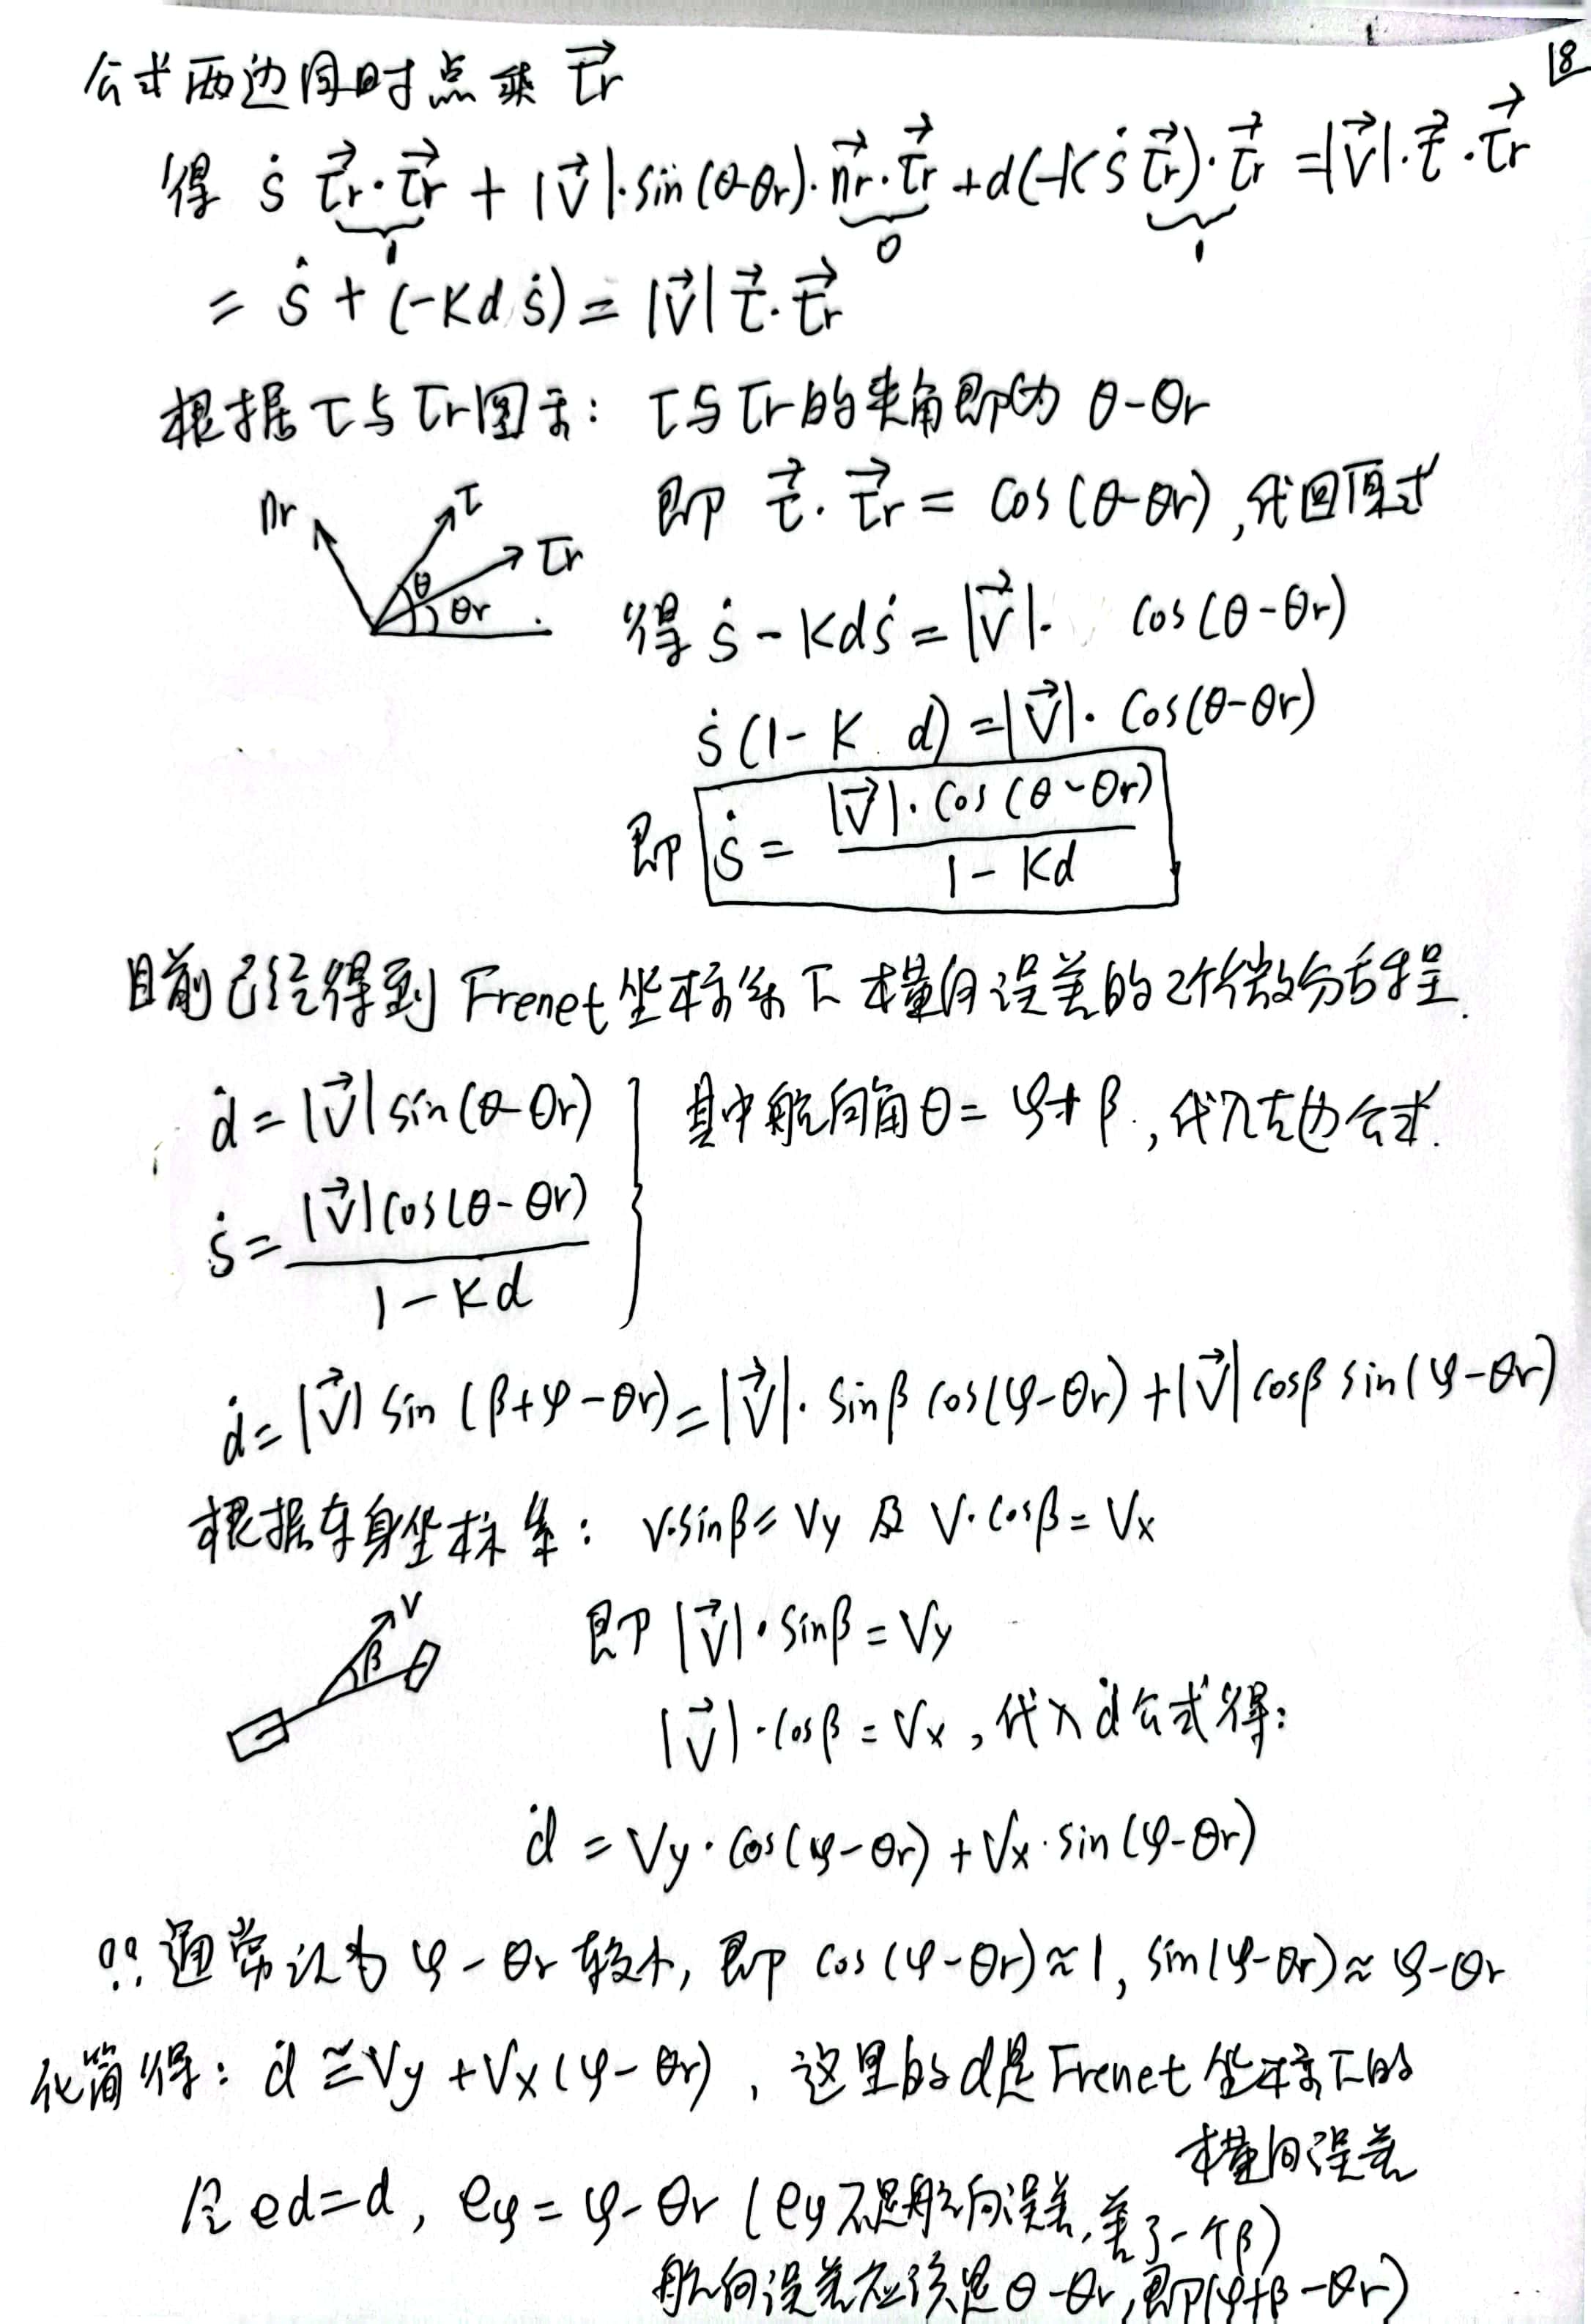 18
公式两边同时点乘 $\vec{\tau_r}$
得 $\dot{s}\,\underbrace{\vec{\tau_r}\cdot\vec{\tau_r}}_{1} + |\vec{V}|\cdot\sin(\theta-\theta_r)\cdot\underbrace{\vec{n_r}\cdot\vec{\tau_r}}_{0} + d(-K\dot{s}\,\underbrace{\vec{\tau_r})\cdot\vec{\tau_r}}_{1} = |\vec{V}|\cdot\vec{\tau}\cdot\vec{\tau_r}$
$= \dot{s} + (-Kd\dot{s}) = |\vec{V}|\,\vec{\tau}\cdot\vec{\tau_r}$
根据 τ与τr图示: τ与τr的夹角即为 θ-θr
nr τ τr θ θr
即 $\vec{\tau}\cdot\vec{\tau_r} = \cos(\theta-\theta_r)$, 代回原式
得 $\dot{s} - Kd\dot{s} = |\vec{V}|\cdot\cos(\theta-\theta_r)$
$\dot{s}(1-K\,d) = |\vec{V}|\cdot\cos(\theta-\theta_r)$
即 $\dot{s} = \frac{|\vec{V}|\cdot\cos(\theta-\theta_r)}{1-Kd}$
目前已经得到 Frenet坐标系下横向误差的2个微分方程.
$\dot{d} = |\vec{V}|\sin(\theta-\theta_r)$
$\dot{s} = \frac{|\vec{V}|\cos(\theta-\theta_r)}{1-Kd}$
其中航向角θ= φ+β., 代入左边公式.
$\dot{d} = |\vec{V}|\sin(\beta+\varphi-\theta_r) = |\vec{V}|\cdot\sin\beta\cos(\varphi-\theta_r) + |\vec{V}|\cos\beta\sin(\varphi-\theta_r)$
根据车身坐标系: V·sinβ= Vy 及 V·cosβ= Vx
V β
即 $|\vec{V}|\cdot\sin\beta = V_y$
$|\vec{V}|\cdot\cos\beta = V_x$, 代入 $\dot{d}$ 公式得:
$\dot{d} = V_y\cdot\cos(\varphi-\theta_r) + V_x\cdot\sin(\varphi-\theta_r)$
∵ 通常认为 φ-θr 较小, 即 cos(φ-θr)≈1, sin(φ-θr)≈φ-θr
化简得: $\dot{d} \cong V_y + V_x(\varphi-\theta_r)$, 这里的d是Frenet坐标系下的
横向误差
令 ed=d, eφ= φ-θr (eφ不是航向误差, 差了一个β)
航向误差应该是 θ-θr, 即(φ+β-θr)